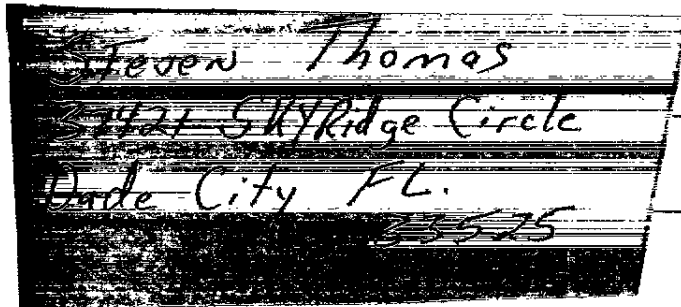 Steven Thomas
31421 SKYRidge Circle
Dade City FL.
33525